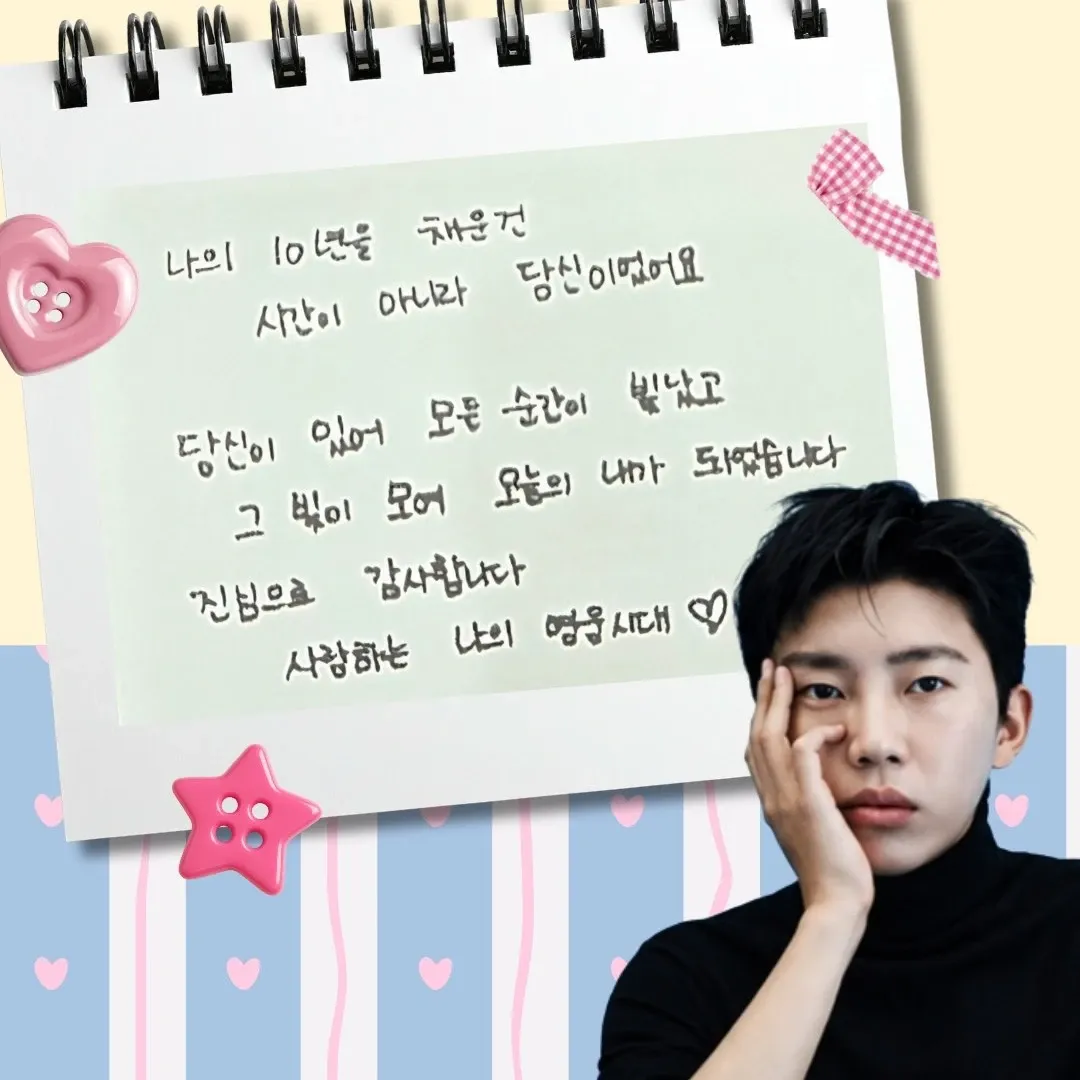 나의 10년을 채운건
시간이 아니라 당신이었어요
당신이 있어 모든 순간이 빛났고
그 빛이 모여 오늘의 내가 되었습니다
진심으로 감사합니다
사랑하는 나의 영웅시대♡